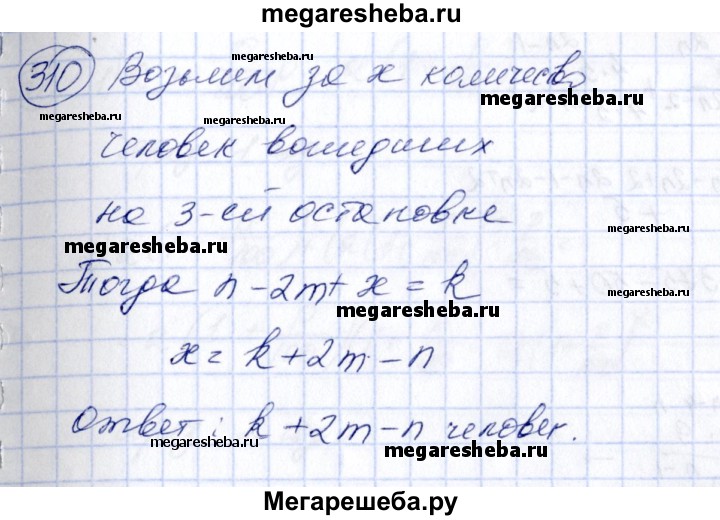 megaresheba.ru
310 Возьмем за x количество
megaresheba.ru
megaresheba.ru
megaresheba.ru
megaresheba.ru
человек вошедших
на 3-ей остановке
megaresheba.ru
Тогда n - 2m + x = k
megaresheba.ru
x = k + 2m - n
Ответ: k + 2m - n человек.
megaresheba.ru
megaresheba.ru
Мегарешеба.ру